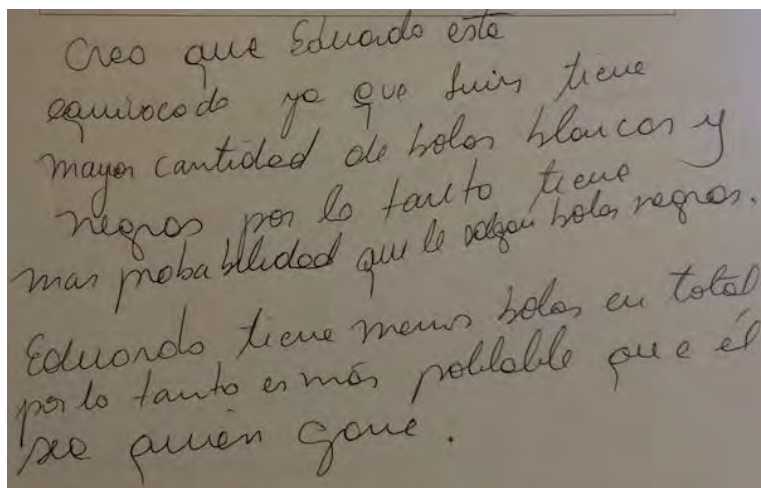 Creo que Eduardo esta
equivocado ya que Luis tiene
mayor cantidad de bolas blancas y
negras por lo tanto tiene
mas probabilidad que le salgan bolas negras.
Eduardo tiene menos bolas en total
por lo tanto es más poblable que él
sea quién gane.